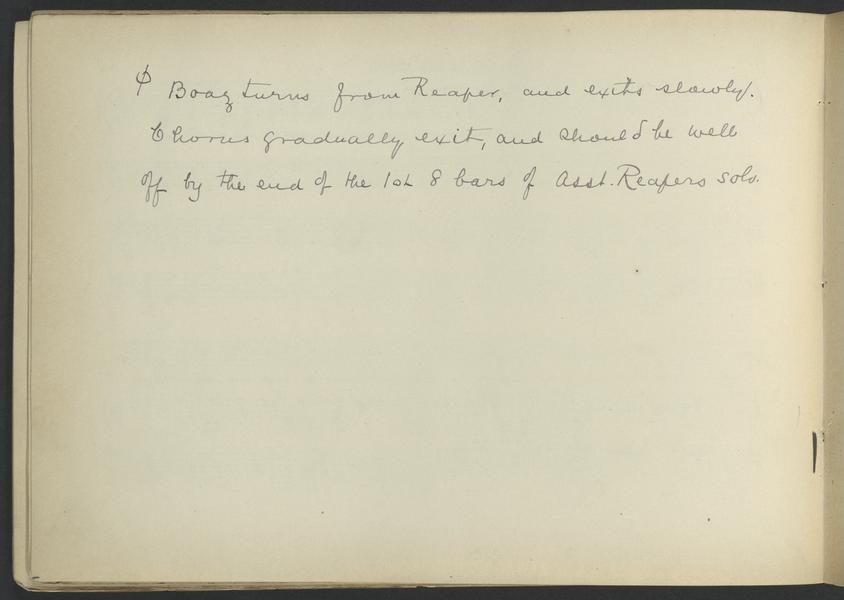 φ Boaz turns from Reaper, and exits slowly.
Chorus gradually exit, and should be well
off by the end of the 1st 8 bars of Asst. Reapers solo.